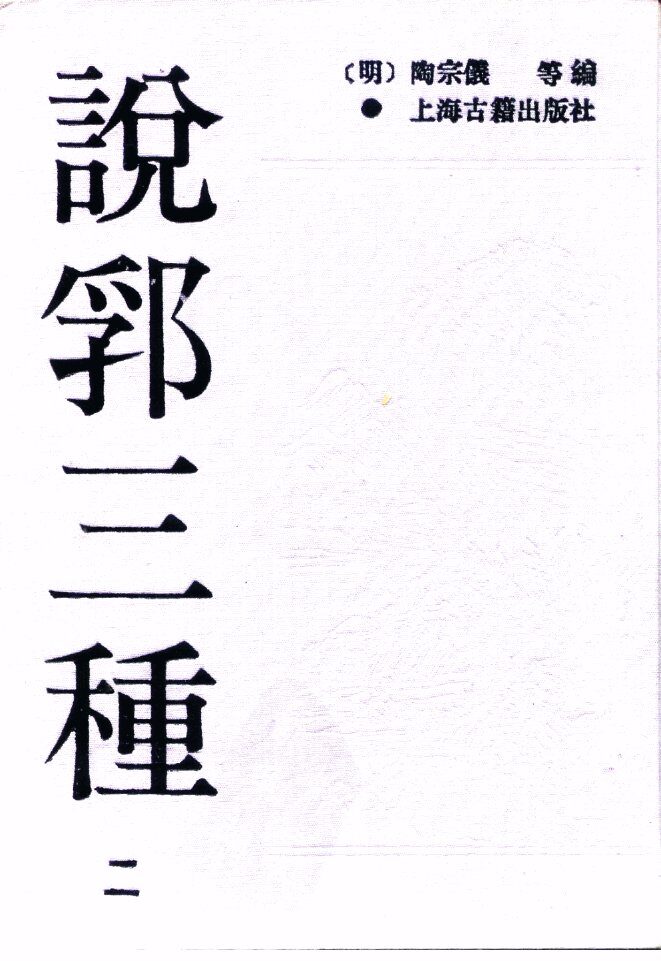 說郛三種
二
〔明〕陶宗儀 等編
● 上海古籍出版社